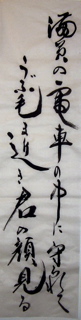 満員の電車の中に守られて
うぶ毛まで近き君の顔見る